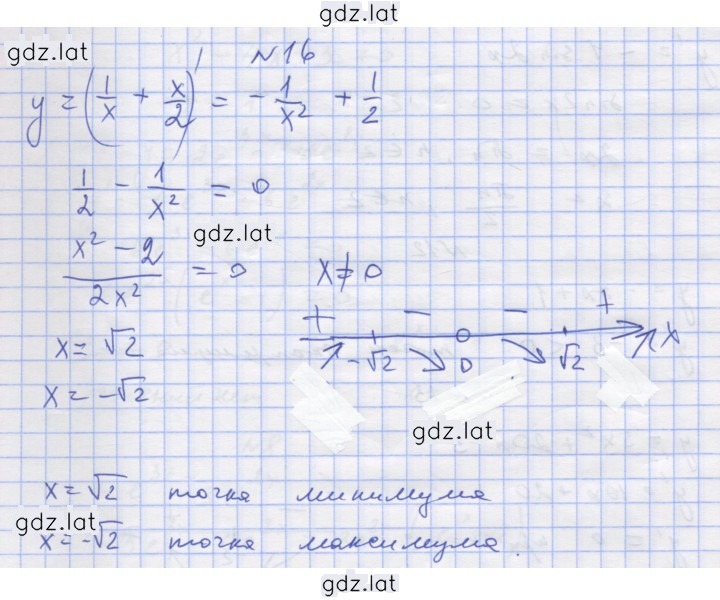 gdz.lat
gdz.lat
№16
y = (1/x + x/2)' = - 1/x² + 1/2
1/2 - 1/x² = 0
gdz.lat
(x² - 2)/(2x²) = 0
x ≠ 0
+ - - +
-√2 0 √2 x
x = √2
x = -√2
gdz.lat
x = √2 точка минимума
gdz.lat
x = -√2 точка максимума.
gdz.lat